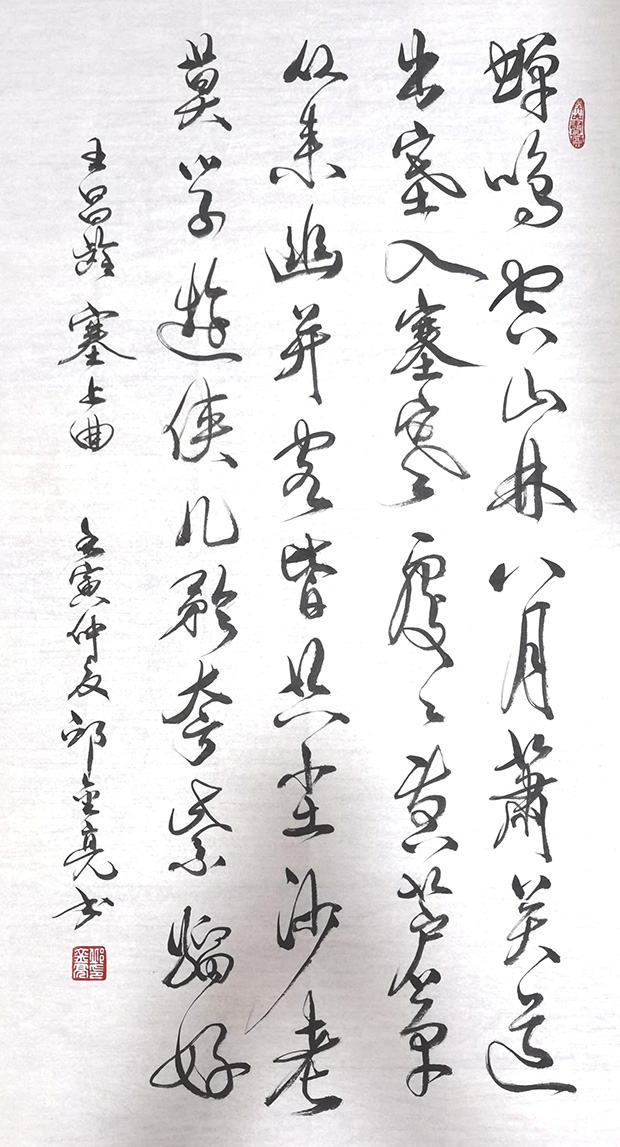 蝉鸣空山林八月萧关道
出塞入塞寒處々黄芦草
从来幽并客皆共尘沙老
莫学遊侠儿矜夸紫骝好
王昌龄 塞上曲 壬寅仲夏邱金亮书